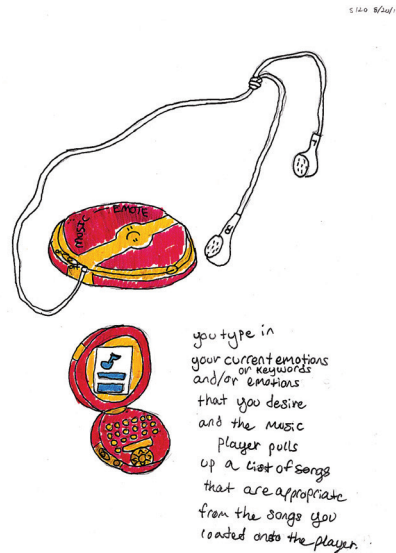 5120 8/20/
MUSIC EMOTE
you type in
your current emotions
or keywords
and/or emotions
that you desire
and the music
player pulls
up a list of songs
that are appropriate
from the songs you
loaded onto the player.